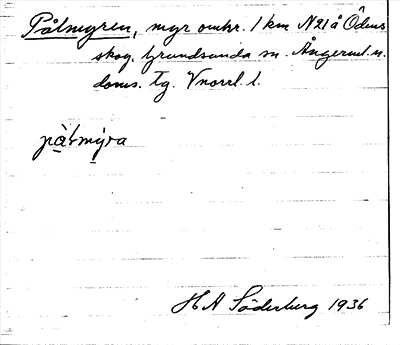 Pålmyren, myr omkr. 1 km N21å Ödens
skog. Grundsunda sn. Ångerml. n.
doms. tg. Vnorrl. l.
pålmýra
H A Söderberg 1936